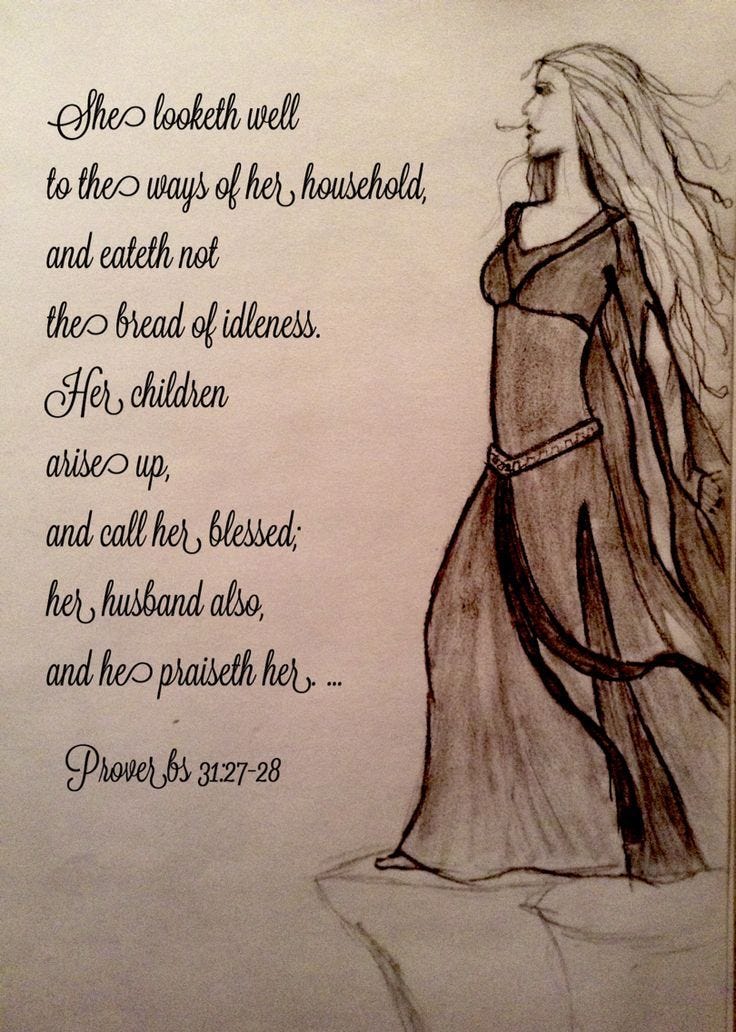 She looketh well
to the ways of her household,
and eateth not
the bread of idleness.
Her children
arise up,
and call her blessed;
her husband also,
and he praiseth her. ...
Proverbs 31:27-28